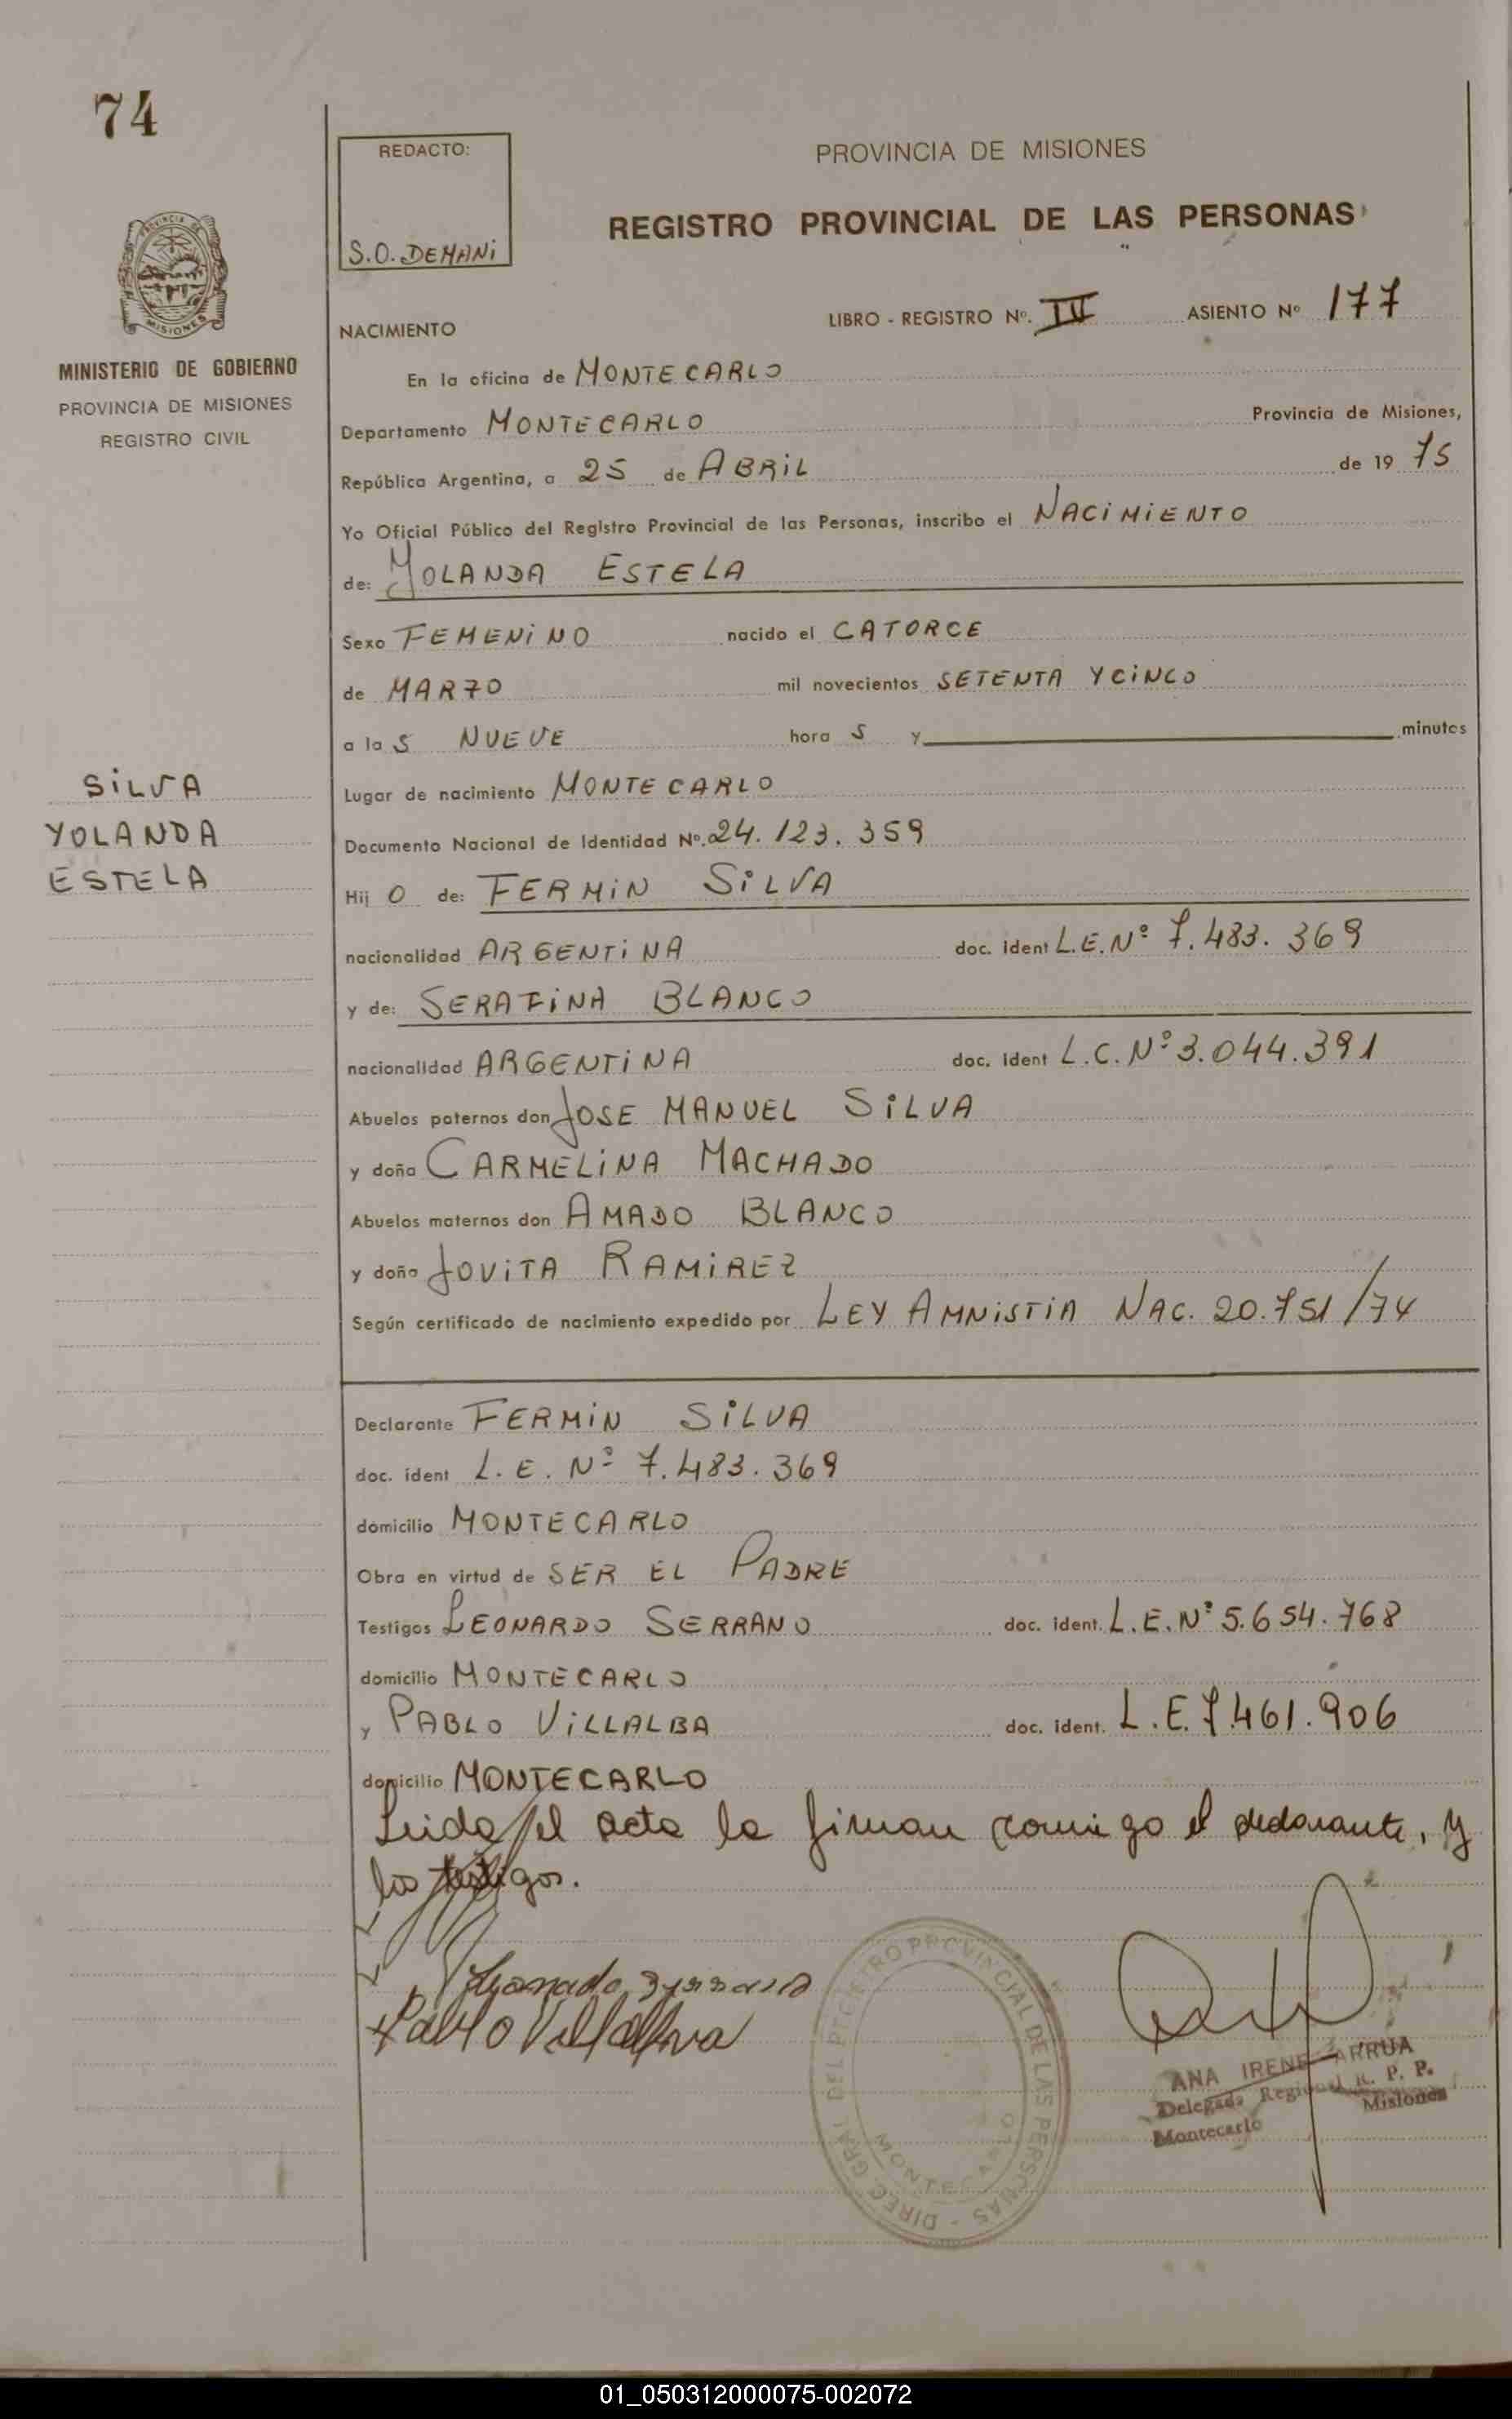 74
REDACTO:
S.O. DEMANI
PROVINCIA DE MISIONES
REGISTRO PROVINCIAL DE LAS PERSONAS
PROVINCIA
MISIONES
MINISTERIO DE GOBIERNO
PROVINCIA DE MISIONES
REGISTRO CIVIL
NACIMIENTO
LIBRO - REGISTRO Nº. ASIENTO Nº 177
En la oficina de MONTECARLO
Departamento MONTECARLO Provincia de Misiones,
República Argentina, a 25 de ABRIL de 19 75
Yo Oficial Público del Registro Provincial de las Personas, inscribo el NACIMIENTO
de: YOLANDA ESTELA
Sexo FEMENINO nacido el CATORCE
de MARZO mil novecientos SETENTA Y CINCO
a la S NUEVE hora S y minutos
SILVA
YOLANDA
ESTELA
Lugar de nacimiento MONTECARLO
Documento Nacional de Identidad Nº. 24.123.359
Hij O de: FERMIN SILVA
nacionalidad ARGENTINA doc. ident L.E.Nº 7.483.369
y de: SERAFINA BLANCO
nacionalidad ARGENTINA doc. ident L.C.Nº 3.044.391
Abuelos paternos don JOSE MANUEL SILVA
y doña CARMELINA MACHADO
Abuelos maternos don AMADO BLANCO
y doña JOVITA RAMIREZ
Según certificado de nacimiento expedido por LEY AMNISTIA NAC. 20.751/74
Declarante FERMIN SILVA
doc. ident L.E. Nº 7.483.369
domicilio MONTECARLO
Obra en virtud de SER EL PADRE
Testigos LEONARDO SERRANO doc. ident. L.E.Nº 5.654.768
domicilio MONTECARLO
y PABLO VILLALBA doc. ident. L.E. 7.461.906
domicilio MONTECARLO
Leida el acta la firman comigo el declarante, y
los testigos.
Pablo Villalva
DIREC. GRAL. DEL REGISTRO PROVINCIAL DE LAS PERSONAS -
MONTECARLO
ANA IRENE ARRUA
Delegada Regional R. P. P.
Montecarlo Misiones
01_050312000075-002072